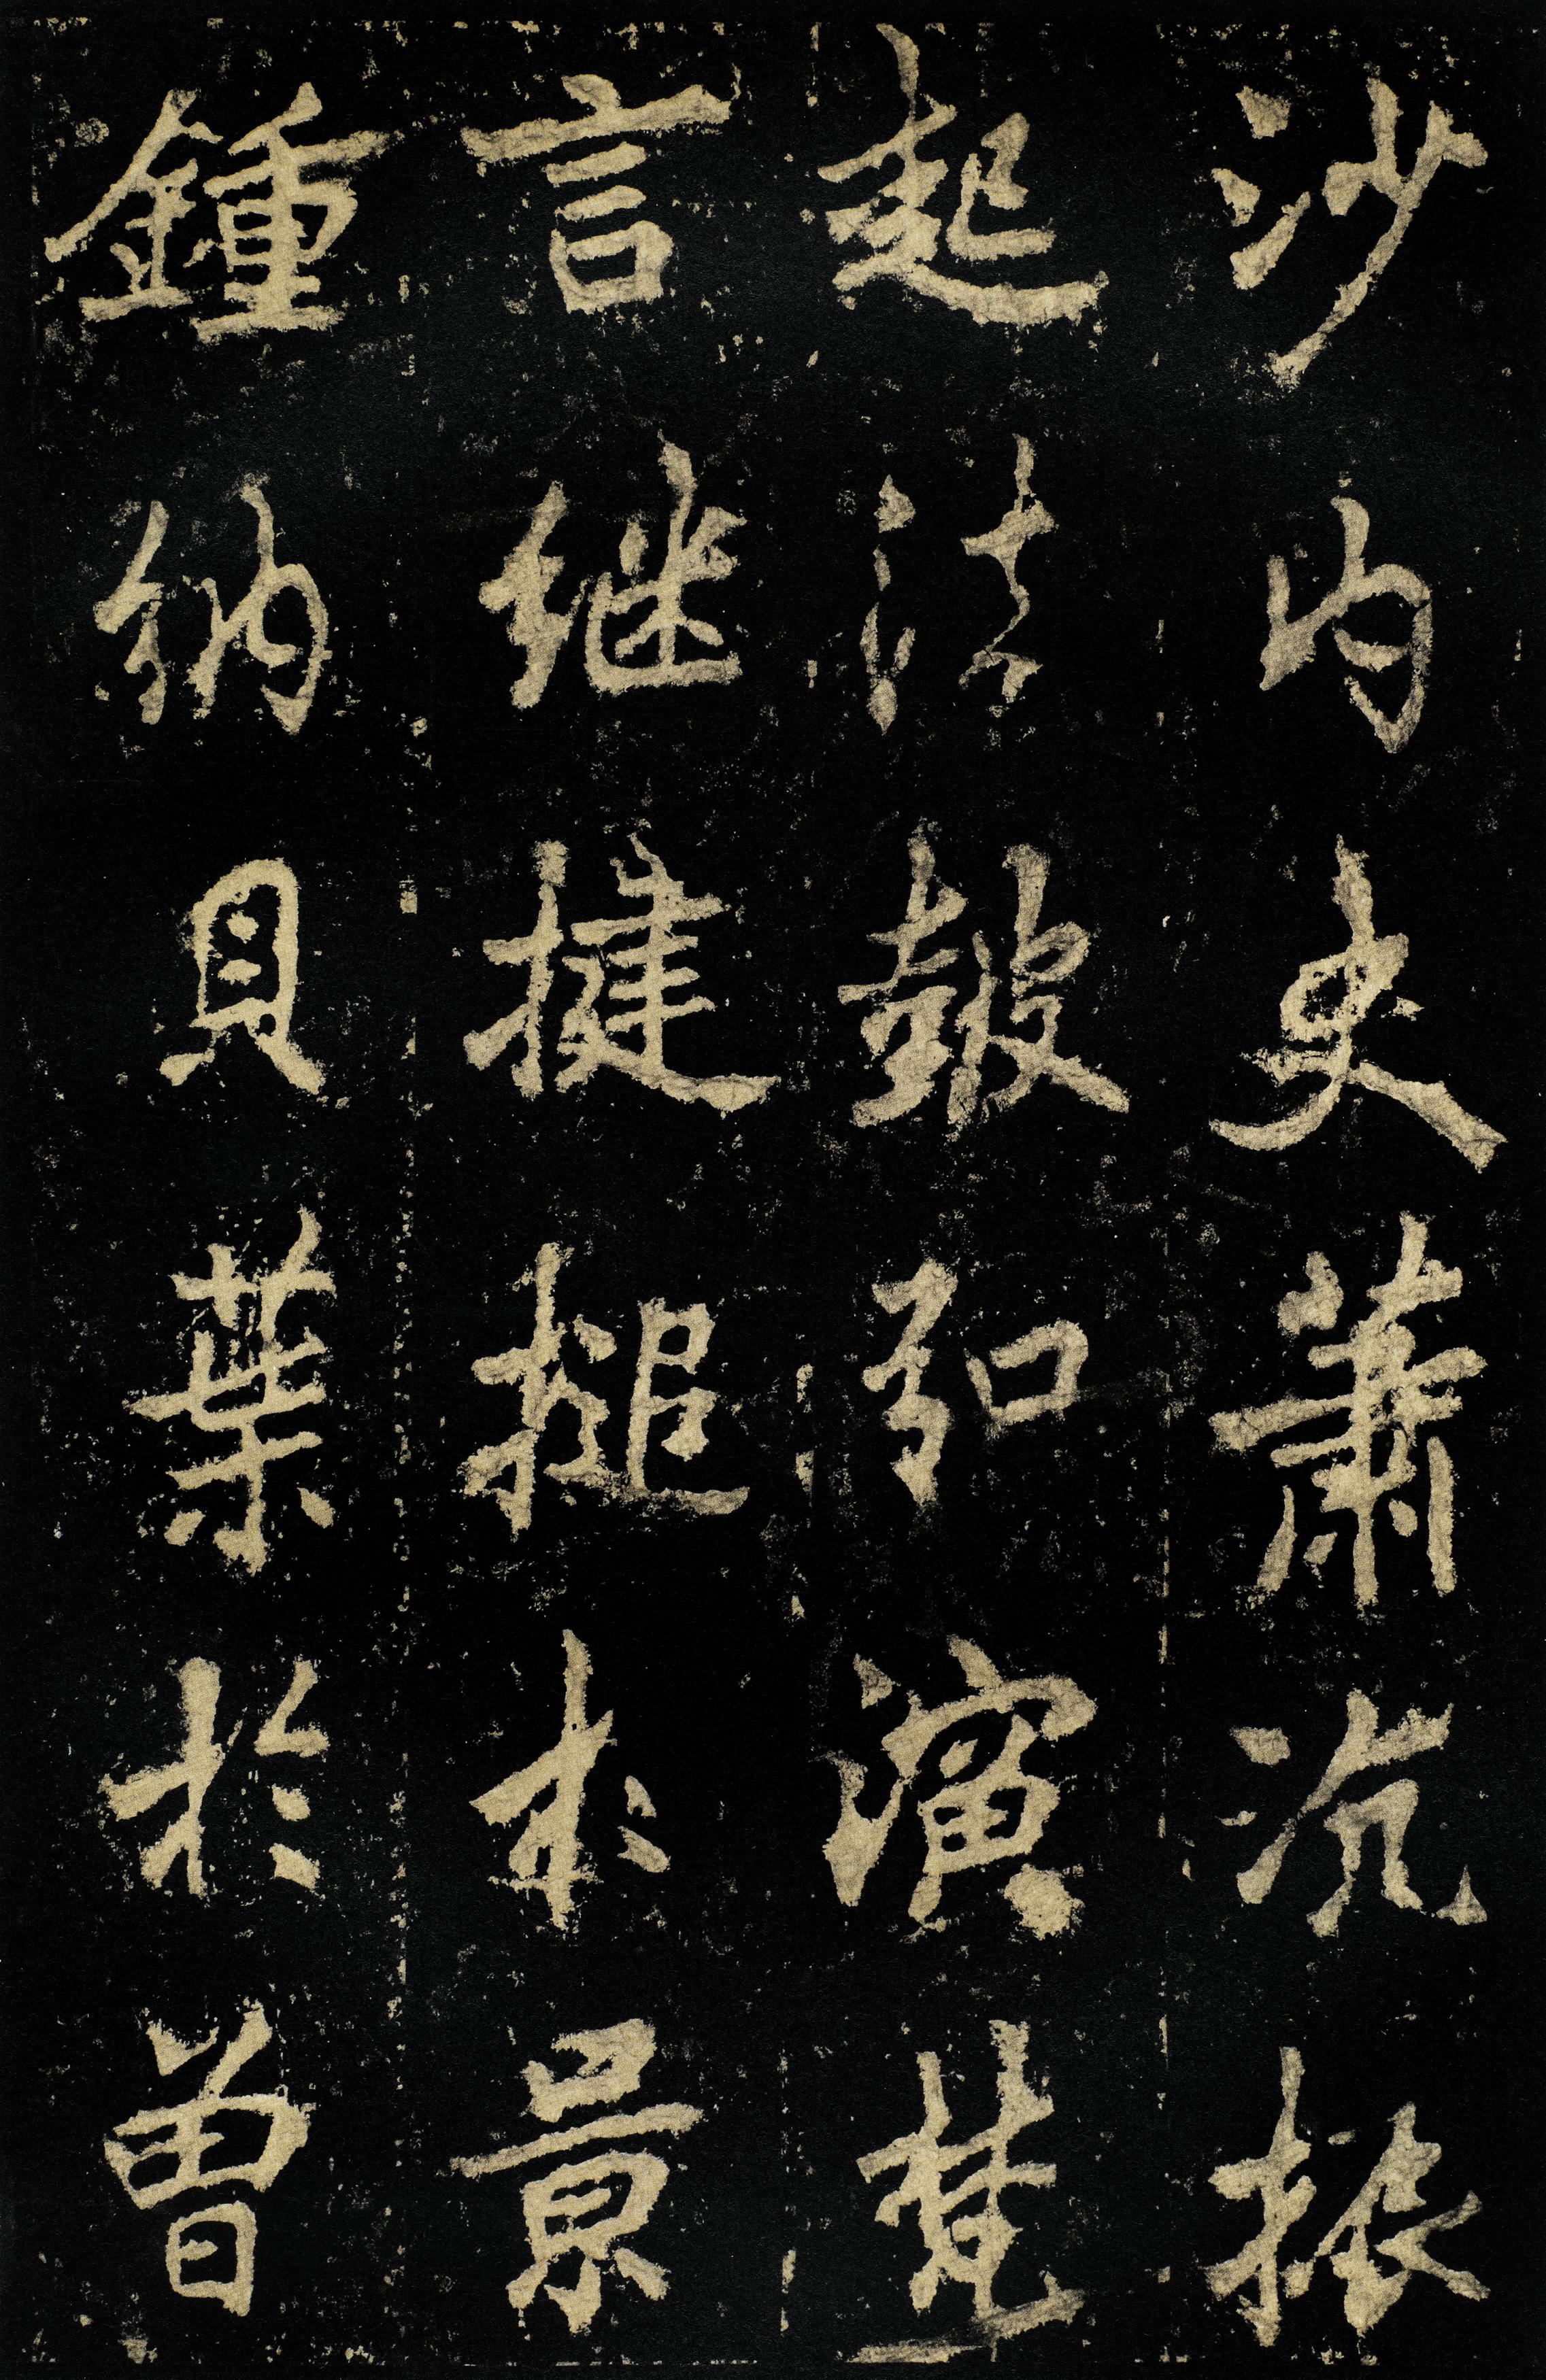 沙内史蕭沆振
起法皷弘演梵
言継揵搥於景
鍾納貝葉於曾